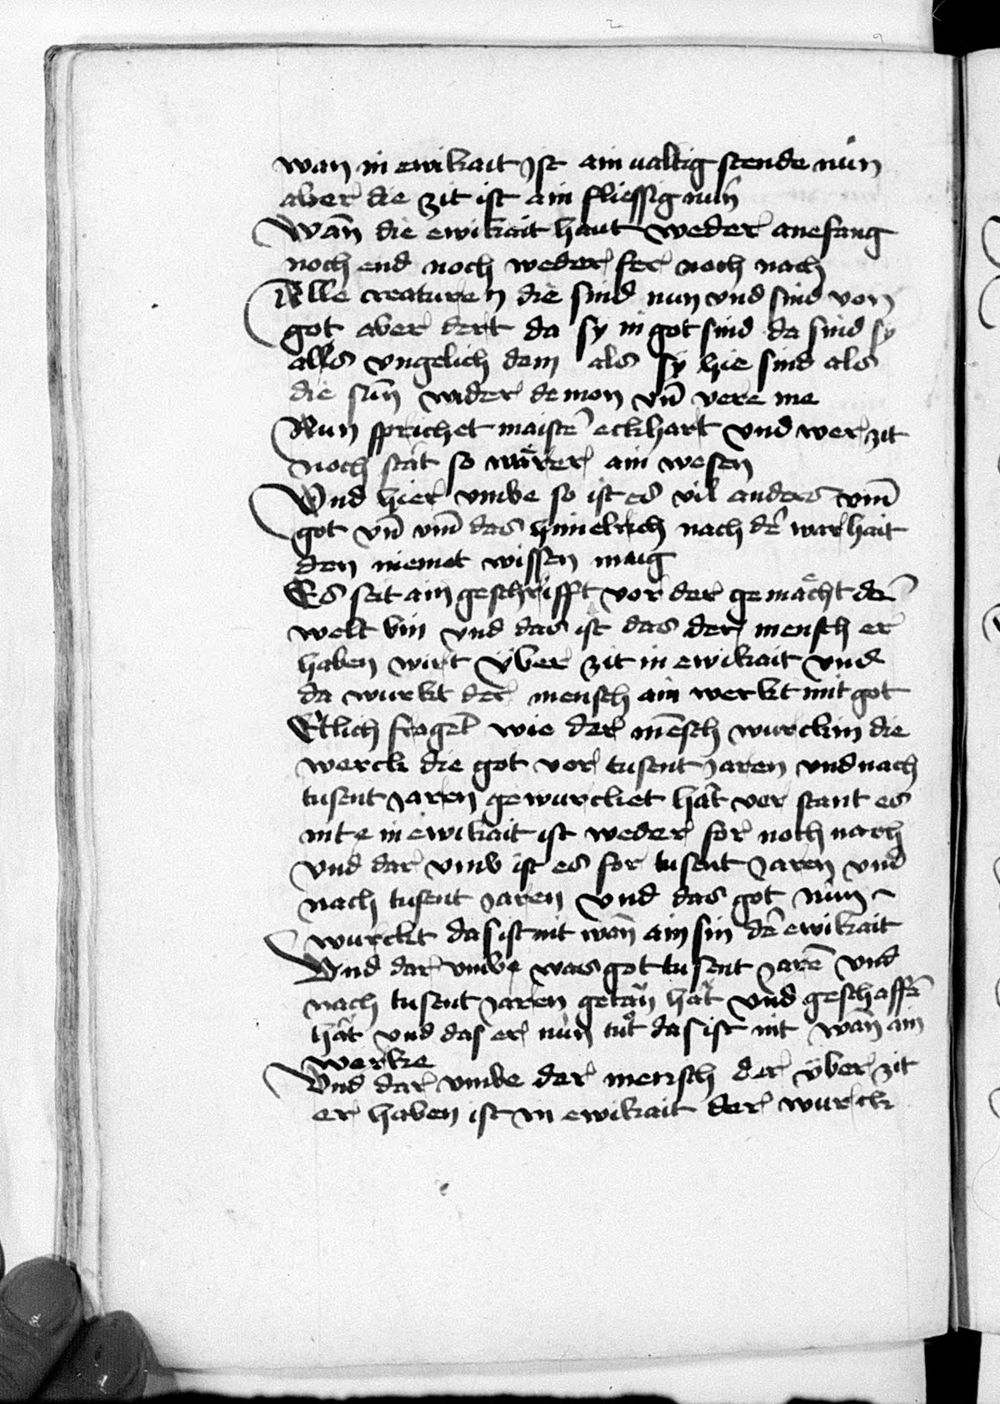 wan in ewikait Ist ain ualtig stende nún
aber die zit ist ain fliessig nuñ
Wan̄ die ewikait haut weder anefang
noch end noch weder fer noch nach
Alle creaturen die sind nun vnd sind von
got aber dert da sy in got sind da sind sy
alls vngelich dem als sy hie sind als
die sun̄ wider de mon vn̄ vere me
Nun sprichet maistē eckhart vnd wer zit
noch stät so wärer ain wesen
Vnd hier vmbe so ist es vil anders vm̄
got vn̄ vm̄ das himelrich nach dē warhait
den niemet wissen maig
Es seit ain geschrifft vor der gemächt der
welt bin vnd das ist das der mensch er
haben wirt v̈ber zit in ewikait vnd
da wurkt der mensch ain werkt mit got
Etlich fragēt wie der mēsch wurck in die
werck die got vor tusent Jaren vnd nach
tusent Jaren gewurcket hät ver stant es
int e in ewikait ist weder for noch nach
vnd dar vmb ist es for tusent Jaren vnd
nach tusent Jaren vnd das got nun
wurckt das ist nit wan̄ ain sin dē ewikait
Vnd dar vmbe was got tusent Jarē vnd
nach tusent Jaren getän hät vnd geschaffē
hät vnd das er nun tuͦt das ist nit wan̄ ain
werke
Vnd dar vmbe der mensch der v̈ber zit
er haben ist in ewikait der wurck